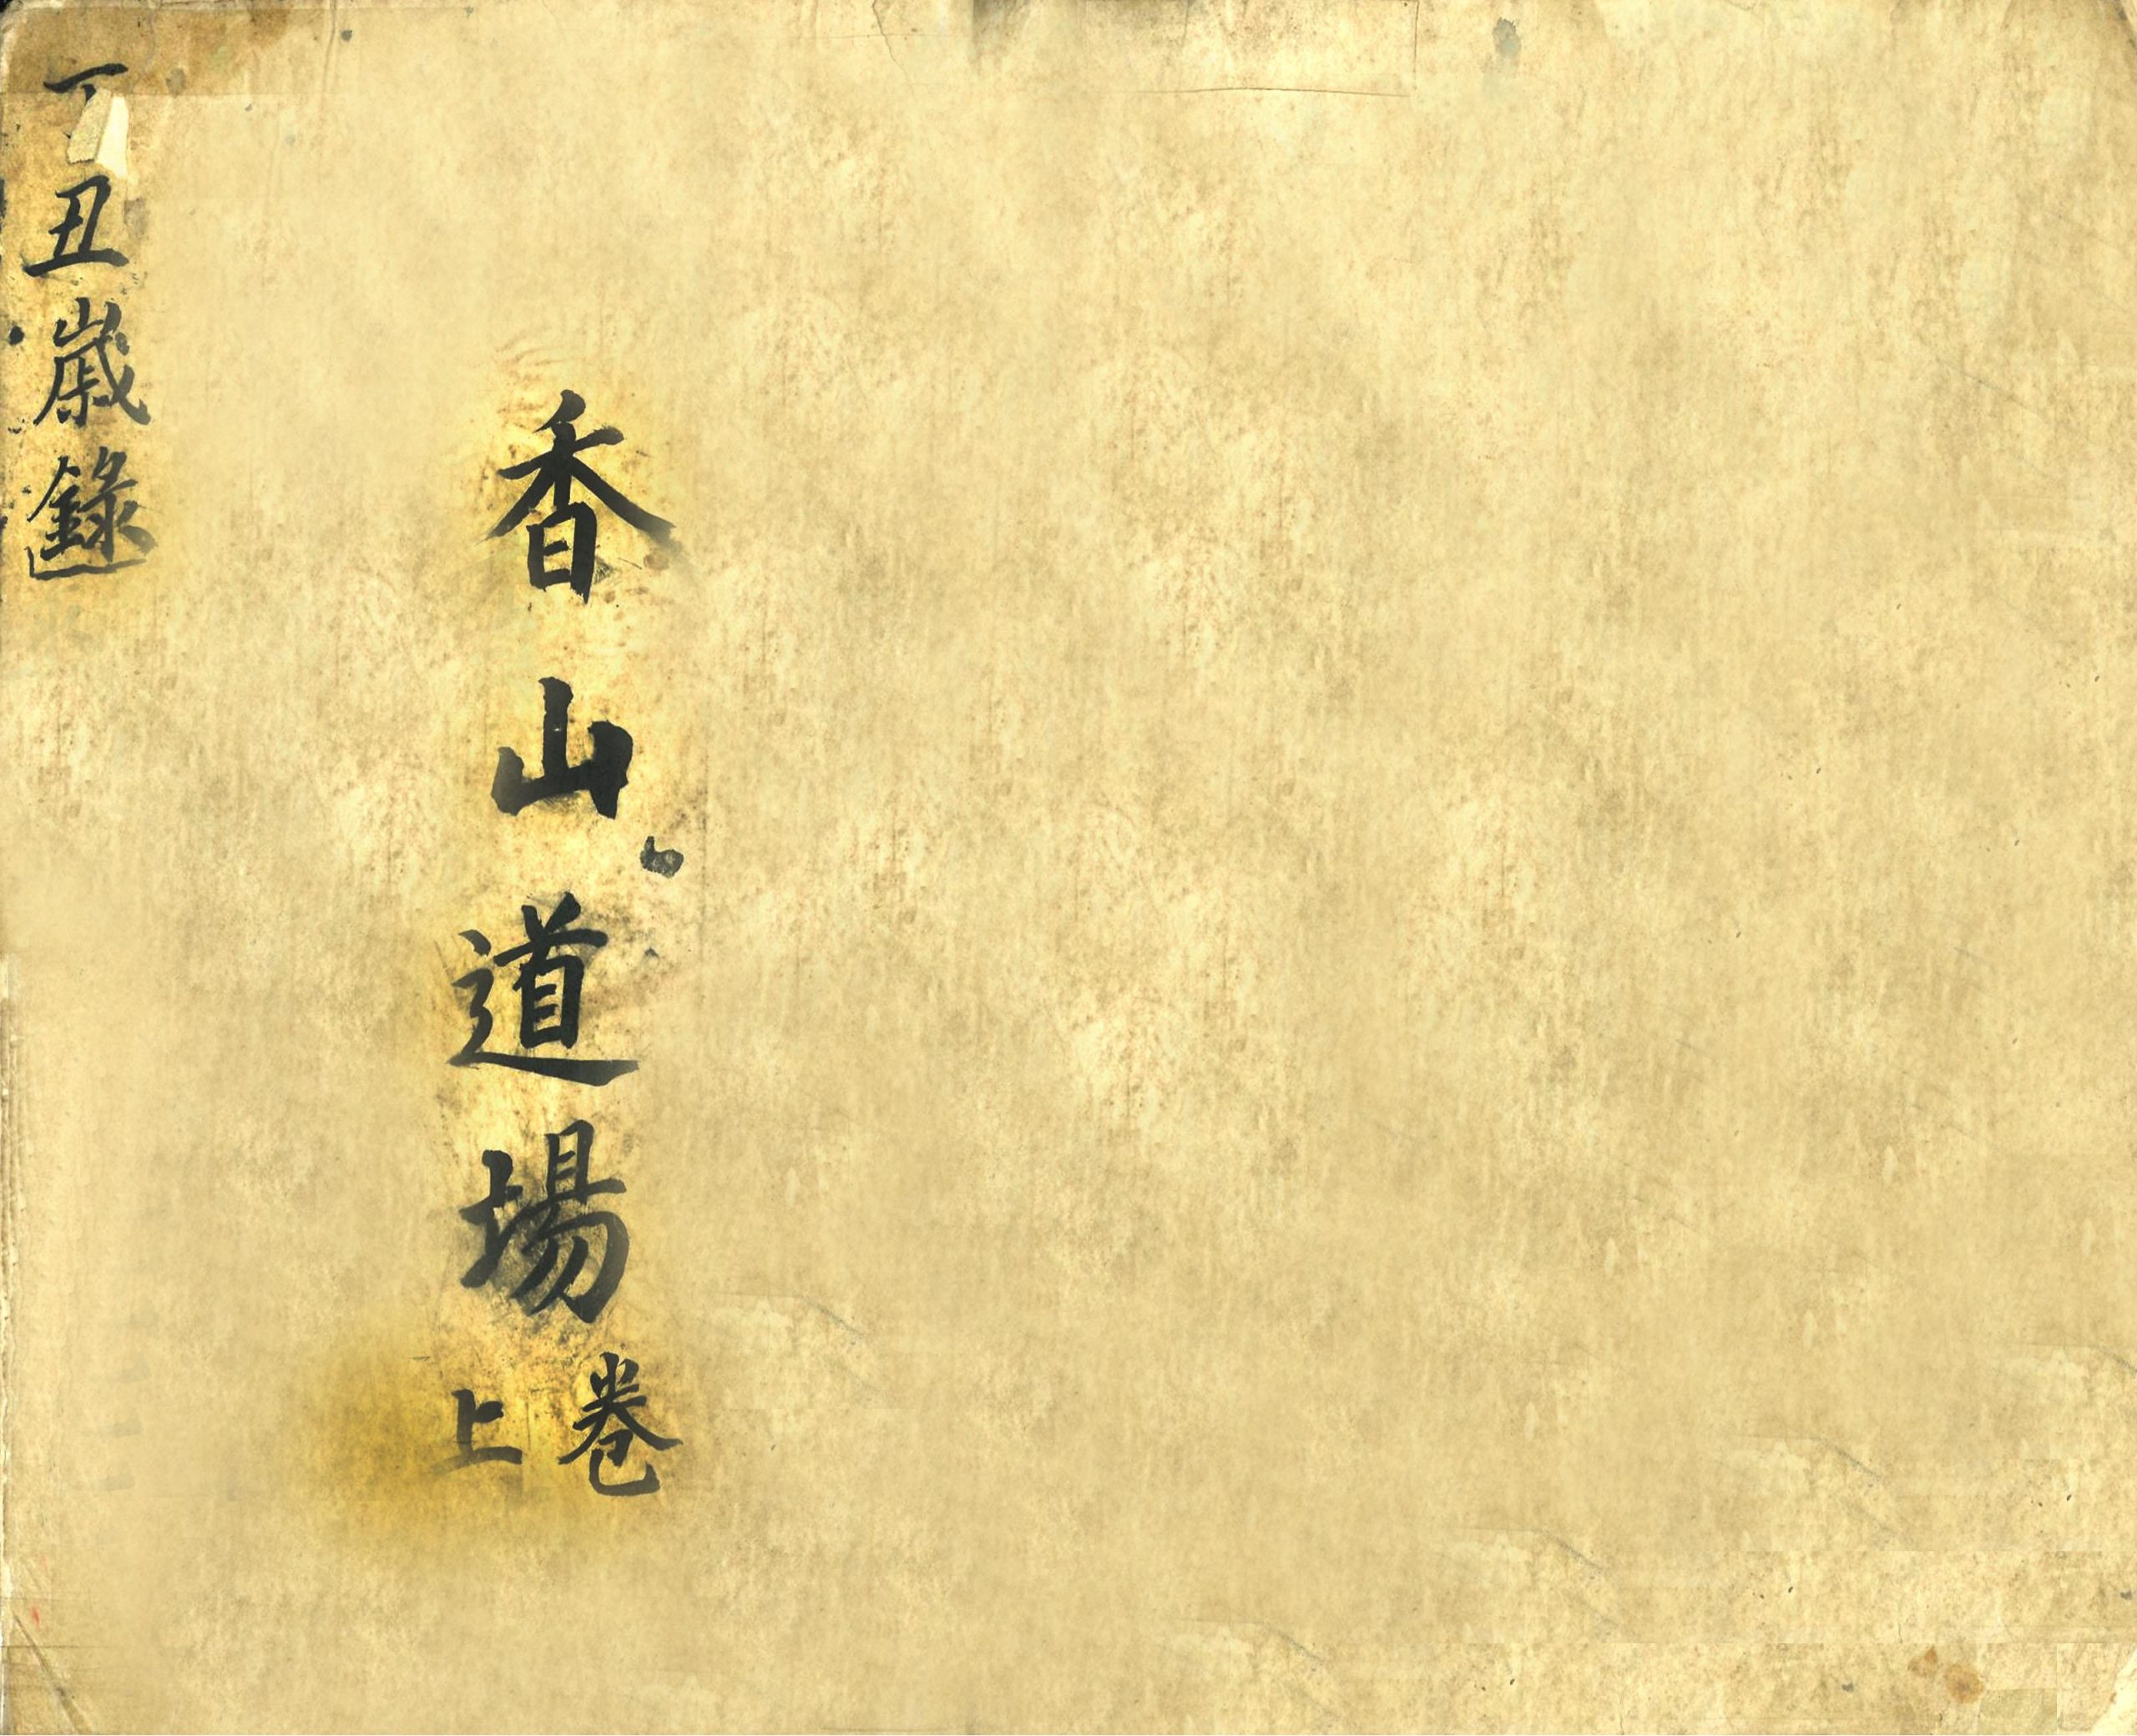 香山道場
卷上
丁丑歲錄